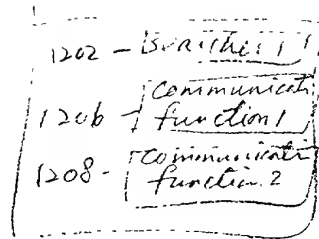 1202 -
1206 - Communicati
function 1
1208 - Communicati
function 2